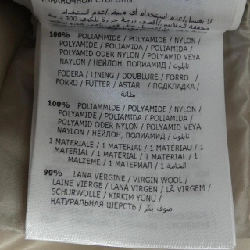 100% POLIAMMIDE / POLYAMIDE / NYLON /
POLYAMID / POLIAMIDA / POLIAMIDA /
POLYAMID ODER NYLON / POLYAMID VEYA
NAYLON / НЕЙЛОН, ПОЛИАМИД / نايلون
FODERA / LINING / DOUBLURE / FORRO /
FORRO / FUTTER / ASTAR / ПОДКЛАДКА /
بطانة
100% POLIAMMIDE / POLYAMIDE / NYLON /
POLYAMID / POLIAMIDA / POLIAMIDA /
POLYAMID ODER NYLON / POLYAMID VEYA
NAYLON / НЕЙЛОН, ПОЛИАМИД / نايلون
1 MATERIALE / 1 MATERIAL / 1 MATERIAU /
1 MATERIAL / 1 MATERIAL / 1 MATERIAL / 1
MALZEME / 1 МАТЕРИАЛ / 1
90% LANA VERGINE / VIRGIN WOOL /
LAINE VIERGE / LANA VIRGEN / LÃ VIRGEM /
SCHURWOLLE / KIRKIM YÜNÜ /
НАТУРАЛЬНАЯ ШЕРСТЬ / صوف بكر